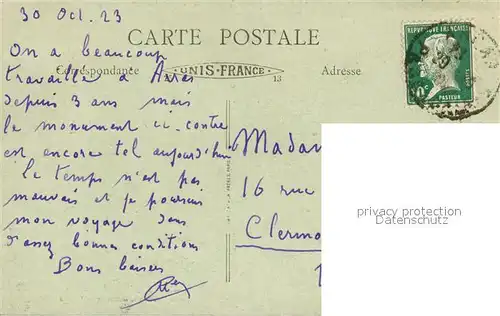 30 Oct. 23
CARTE POSTALE
Correspondance
UNIS-FRANCE
13
Adresse
REPUBLIQUE FRANÇAISE
POSTES
PASTEUR
On a beaucoup
travaillé à Arras
depuis 3 ans mais
le monument ci-contre
est encore tel aujourd'hui
le temps n'est pas
mauvais et je poursuis
mon voyage dans
d'assez bonnes conditions
Bons baisers
Madam
16 rue
Clermo
privacy protection
Datenschutz